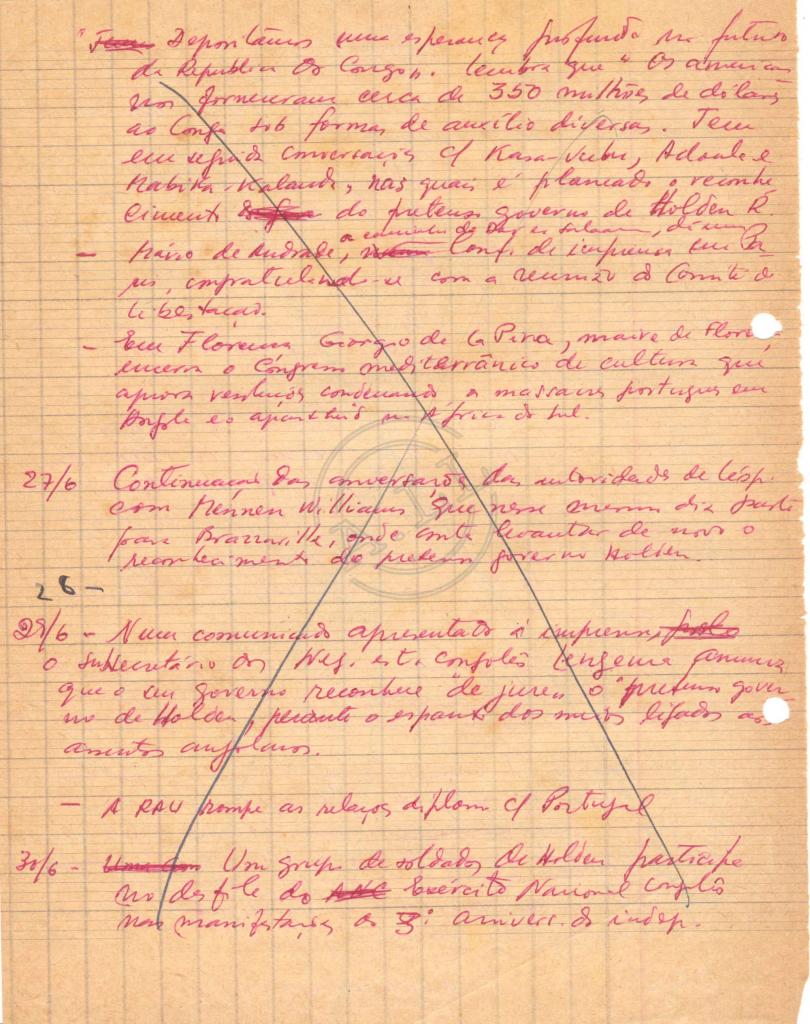 "Depositamos uma esperança profunda no futuro
da República do Congo". Lembra que "Os america
nos forneceram cerca de 350 milhões de dólares
ao Congo sob formas de auxílio diversas. Tem
em seguida conversações c/ Kasa-Vubu, Adoula e
Mabika-Kalanda, nas quais é planeado o reconhe
cimento do pretenso governo de Holden R.
- Mário de Andrade, a caminho de Dar es Salaam, dá uma Conf. de imprensa em Pa
ris, congratulando-se com a reunião do Comité de
Libertação.
- Em Florença Giorgio de la Pira, maire de Flore
encerra o Congresso mediterrânico de cultura que
aprova resoluções condenando o massacre português em
Angola e o apartheid na África do Sul.
27/6 Continuação das conversações das autoridades de Léop.
com Mennen Williams que nesse mesmo dia parte
para Brazzaville, onde conta levantar de novo o
reconhecimento do pretenso governo Holden.
28-
29/6 - Num comunicado apresentado à imprensa
o subsecretário dos Neg. est. congolês Lengema anuncia
que o seu governo reconhece "de jure" o "pretenso gover
no de Holden, perante o espanto dos meios ligados aos
assuntos angolanos.
- A RAU rompe as relações diplom c/ Portugal
30/6 - Um grupo de soldados de Holden participa
no desfile do Exército Nacional Congolês
nas manifestações do 3º anivers. da indep.